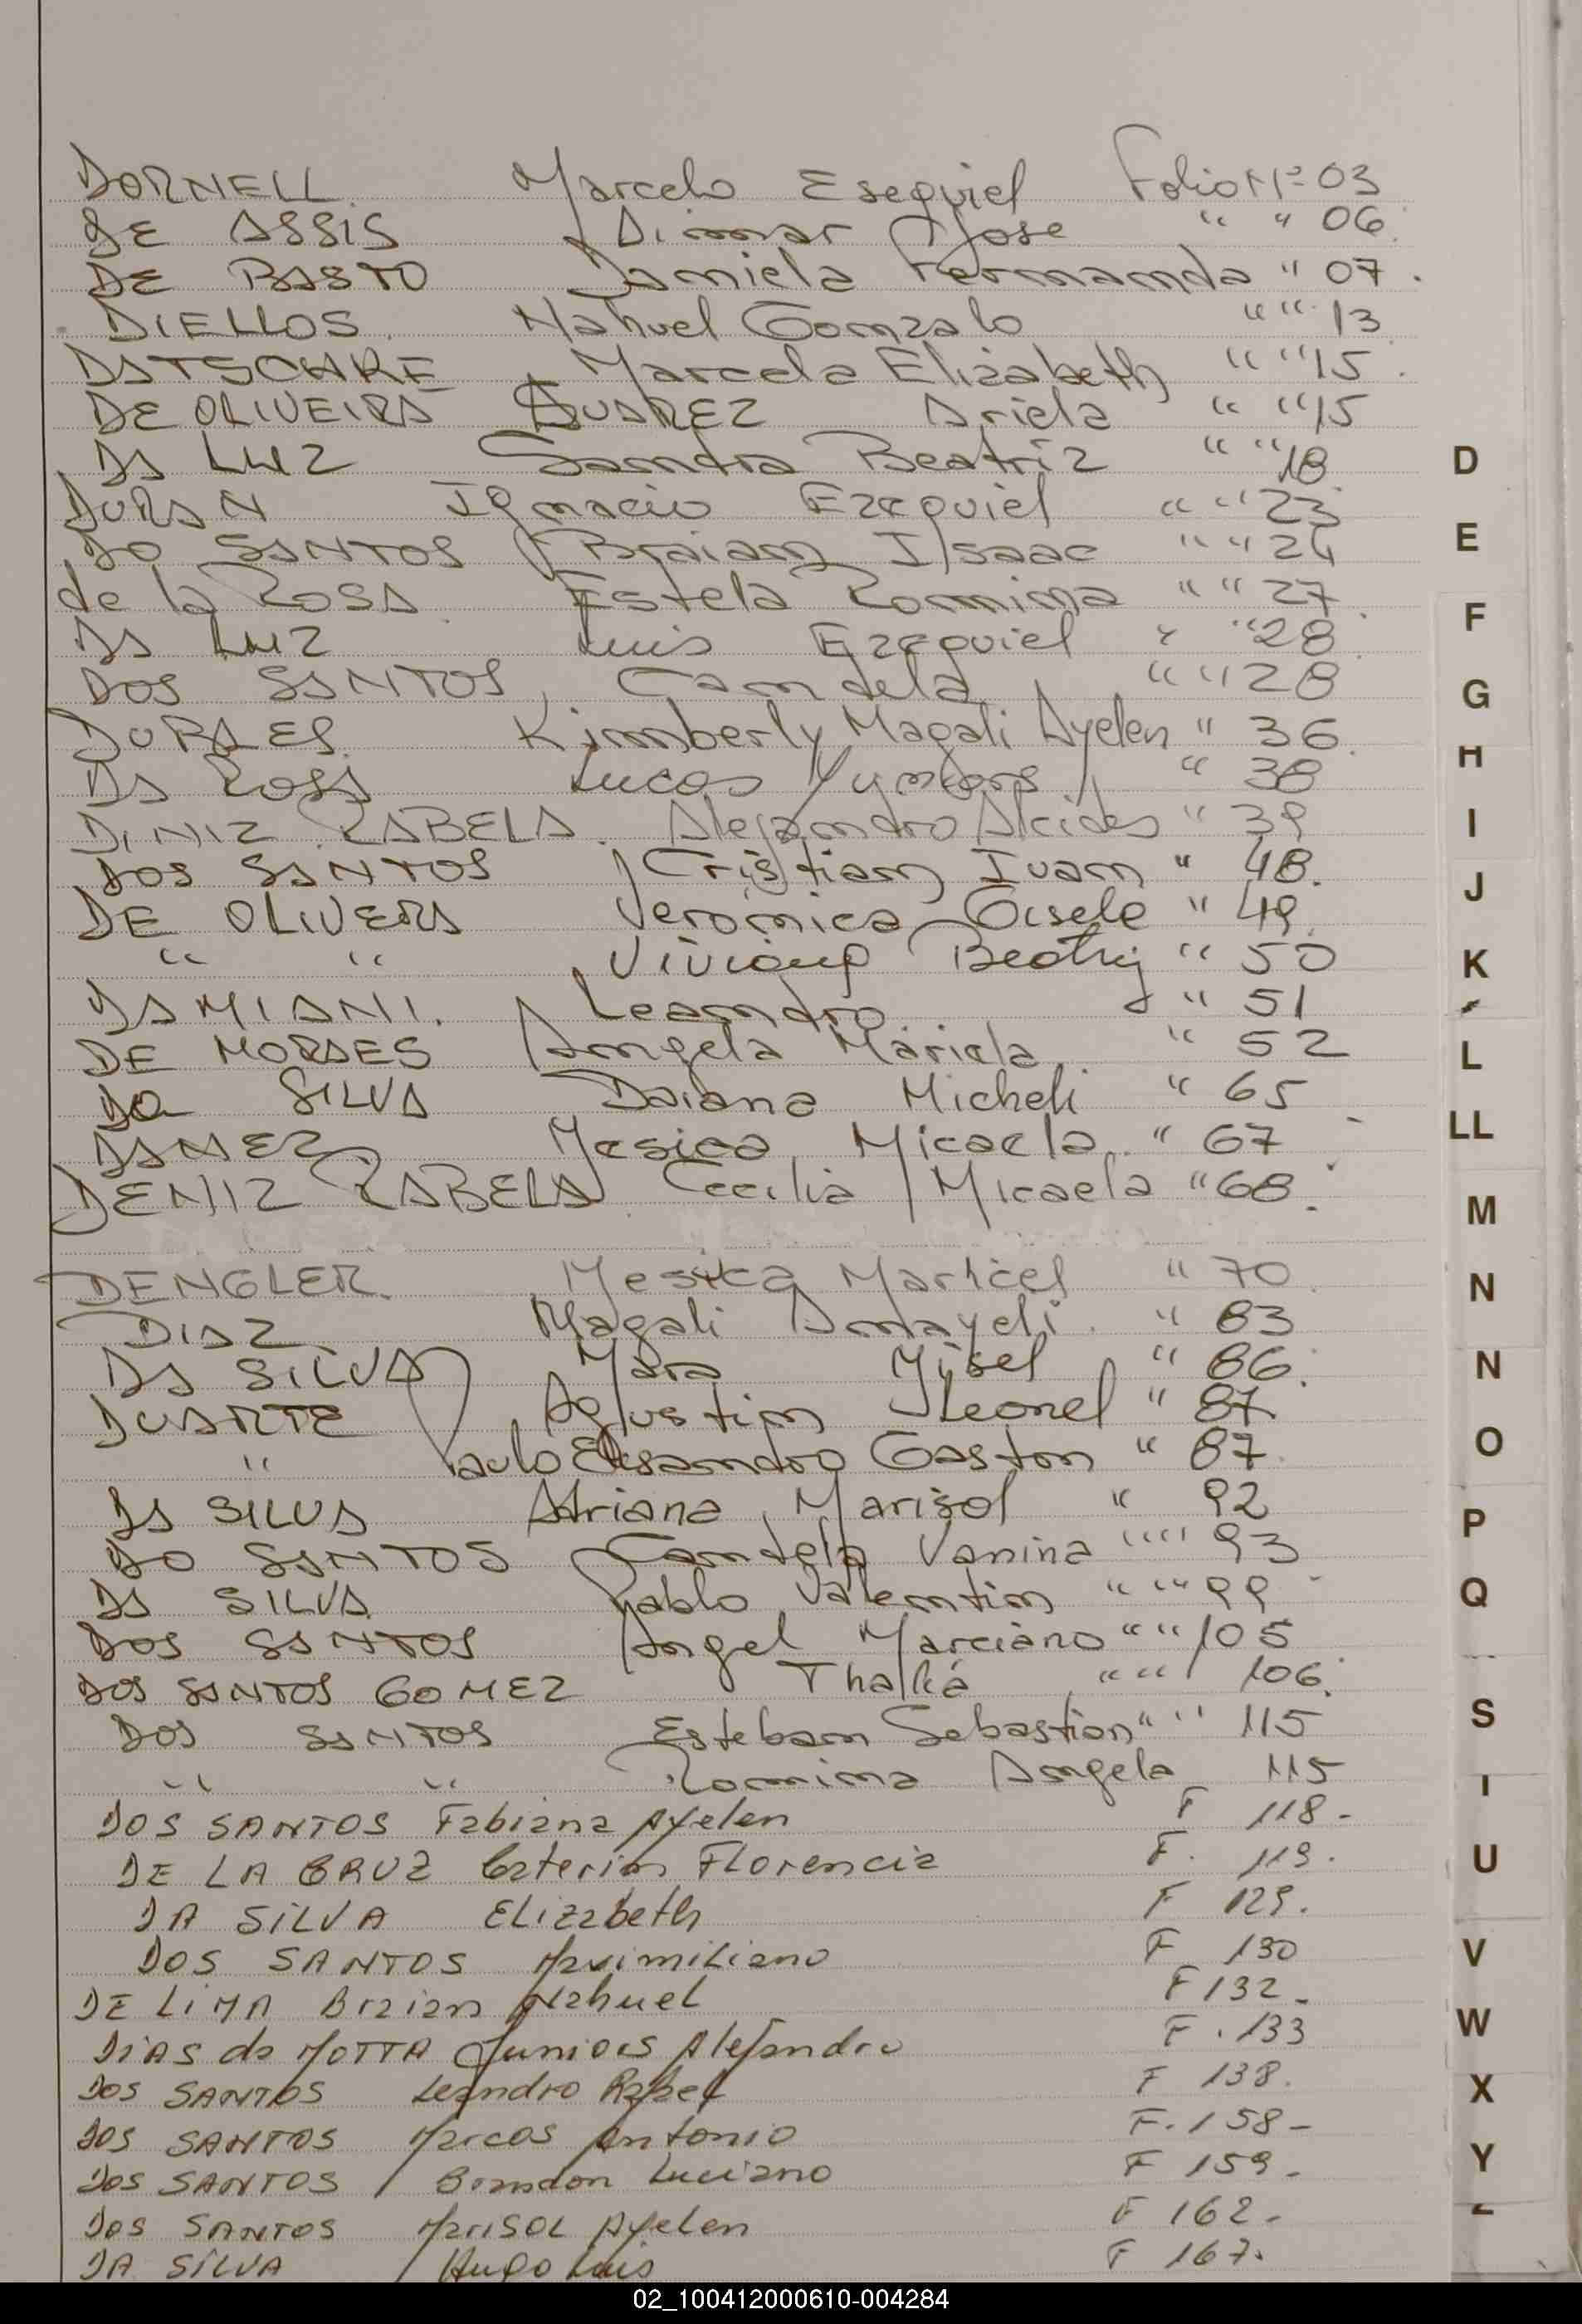 DORNELL Marcelo Esequiel Folio Nº 03
DE ASSIS Dimar Jose " " 06
DE BASTO Daniela Fernanda " 07
DIELLOS Nahuel Gonzalo " " 13
DATSCHKE Marcela Elizabeth " " 15
DE OLIVEIRA SUAREZ Ariela " " 15
DA LUZ Sandra Beatriz " " 18
DURAN Ignacio Ezequiel " " 23
DO SANTOS Braian Isaac " " 24
de la ROSA Estela Romina " " 27
DA LUZ Luis Ezequiel " " 28
DOS SANTOS Candela " " 28
DORALES Kimberly Magali Ayelen " 36
DA ROSA Lucas " 38
DINIZ RABELA Alejandro Alcides " 39
DOS SANTOS Cristian Ivan " 48
DE OLIVERA Veronica Gisele " 49
" " Viviana Beatriz " 50
DAMIANI. Leandro " 51
DE MORAES Angela Mariela " 52
Da SILVA Daiana Micheli " 65
Yesica Micaela " 67
DENIZ RABELA Cecilia Micaela " 68
DENGLER Yesica Maricel " 70
DIAZ Magali Amayeli " 83
DA SILVA Mara Yisel " 86
DUARTE Agustin Leonel " 87
" Paulo Elisandro Gaston " 87
DA SILVA Adriana Marisol " 92
DO SANTOS Candela Vanina " " 93
DA SILVA Pablo Valentin " " 99
DOS SANTOS Angel Marciano " " 105
DOS SANTOS GOMEZ Thalia " " 106
DOS SANTOS Esteban Sebastian " " 115
" " Romina Angela 115
DOS SANTOS Fabiana Ayelen F 118-
DE LA CRUZ Caterin Florencia F. 119.
DA SILVA Elizabeth F 129.
DOS SANTOS Maximiliano F 130
DE LIMA Braian Nahuel F 132-
DIAS da MOTTA Juniors Alejandro F. 133
DOS SANTOS Leandro Rafael F 138.
DOS SANTOS Marcos Antonio F. 158-
DOS SANTOS Brandon Luciano F 159-
DOS SANTOS Marisol Ayelen F 162-
DA SILVA Hugo Luis F 167.
D
E
F
G
H
I
J
K
L
LL
M
N
N
O
P
Q
S
U
V
W
X
Y
02_100412000610-004284